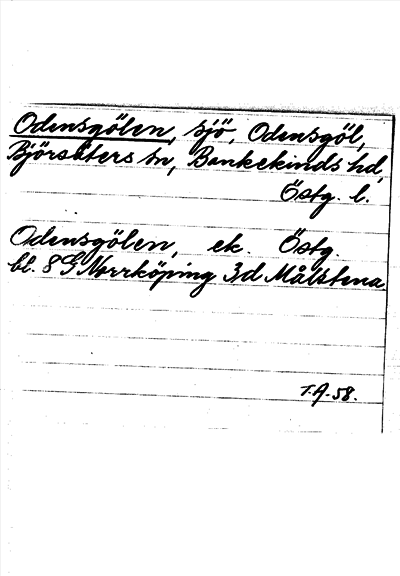 Odensgölen, sjö, Odensgöl,
Björsäters sn, Bankekinds hd,
Östg. l.
Odensgölen, ek. Östg.
bl. 8 G Norrköping 3d Målstena
T.A. 58.